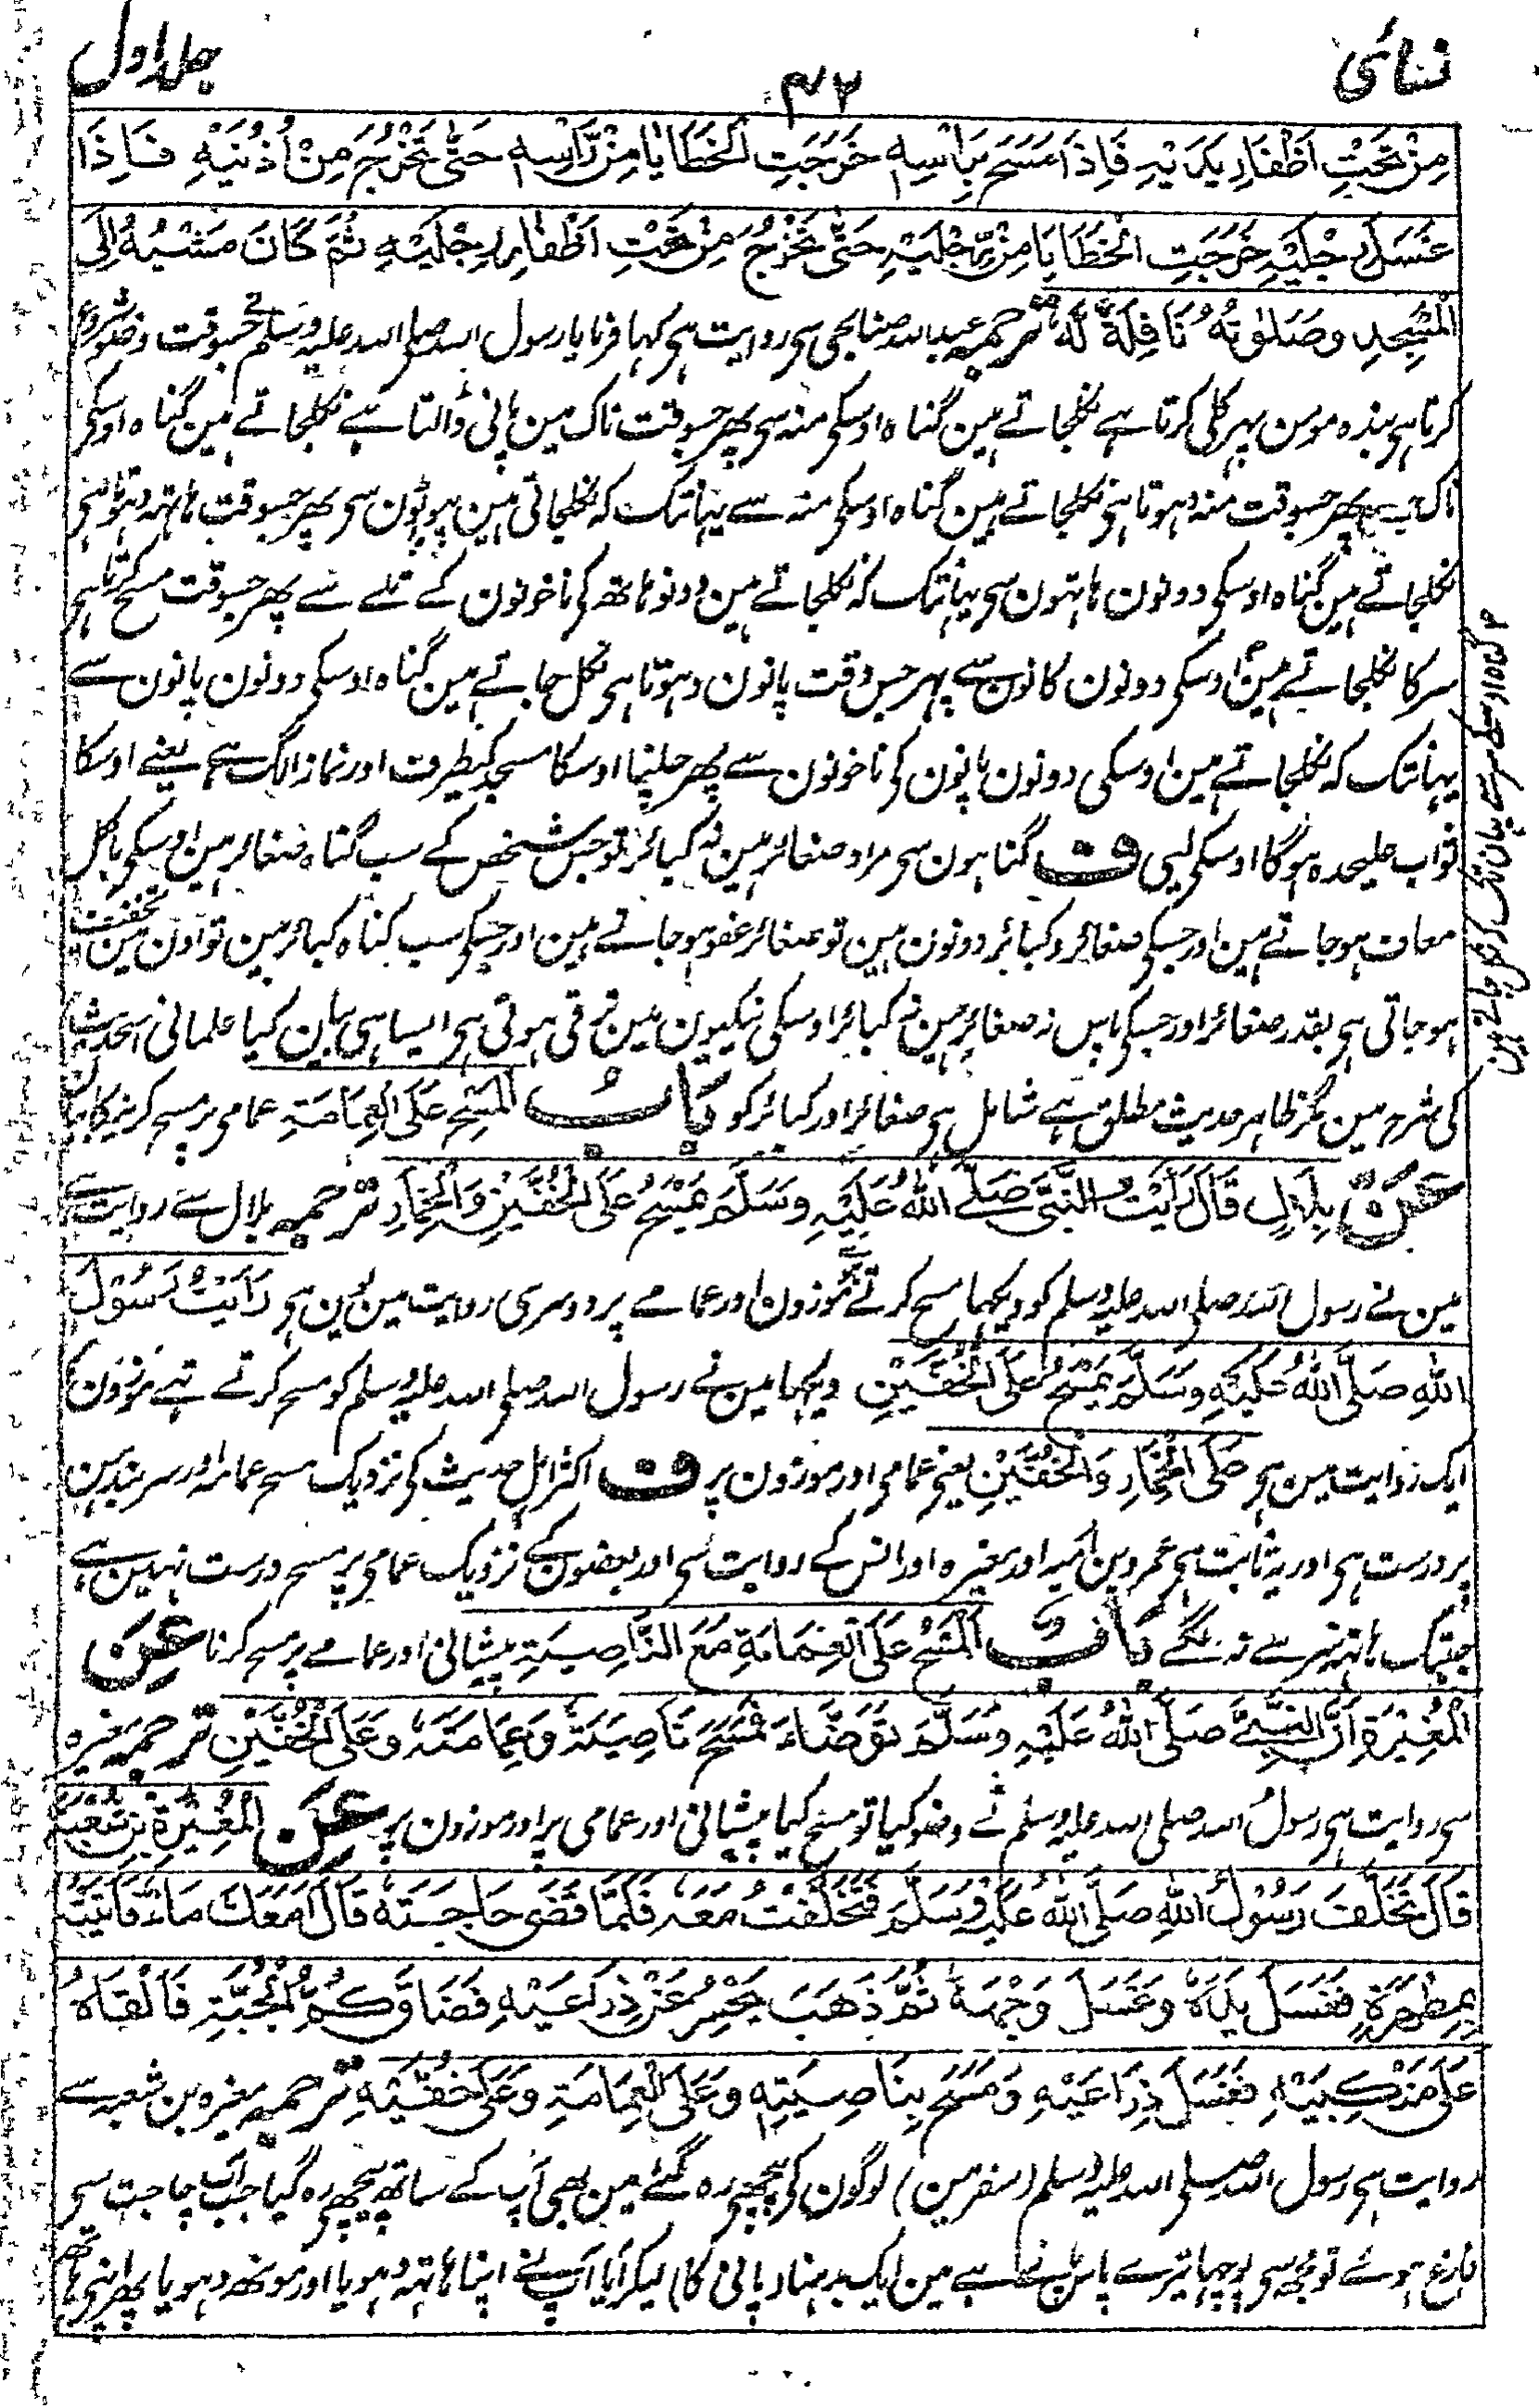 نسائی
۴۲
جلد اول
مِنْ تَحْتِ اَظْفَارِ يَدَيْهِ فَاِذَا مَسَحَ بِرَاْسِهٖ خَرَجَتِ الْخَطَايَا مِنْ رَّاْسِهٖ حَتّٰى تَخْرُجَ مِنْ اُذُنَيْهِ فَاِذَا
غَسَلَ رِجْلَيْهِ خَرَجَتِ الْخَطَايَا مِنْ رِّجْلَيْهِ حَتّٰى تَخْرُجَ مِنْ تَحْتِ اَظْفَارِ رِجْلَيْهِ ثُمَّ كَانَ مَشْيُهٗ اِلَى
الْمَسْجِدِ وَصَلٰوتُهٗ نَافِلَةً لَّهٗ ترجمہ عبداللہ صنابحی سی روایت ہی کہا فرمایا رسول اللہ صلی اللہ علیہ وسلم نے جسوقت وضو شروع
کرتا ہی بندہ مومن پہر کلی کرتا ہے نکلجاتے ہین گناہ اوسکی منہ سی پھر جسوقت ناک مین پانی ڈالتا ہے نکلجاتے ہین گناہ اوسکی
ناک سے پھر جسوقت منہ دہوتا ہی نکلجاتے ہین گناہ اوسکی منہ سے یہانتک کہ نکلجاتی ہین پپوٹون سی پھر جسوقت ہاتہ دہوتا ہی
نکلجاتے ہین گناہ اوسکی دونون ہاتہون سی یہانتک کہ نکلجاتے ہین دونو ہاتھ کی ناخونون کے تلے سے پھر جسوقت مسح کرتا ہی
سر کا نکلجاتے ہین اوسکی دونون کانون سے پہر جس وقت پانون دہوتا ہی نکل جاتے ہین گناہ اوسکی دونون پانون سے
یہانتک کہ نکلجاتے ہین اوسکی دونون پانون کی ناخونون سے پھر چلنا اوسکا مسجد کیطرف اور نماز الگ ہے یعنے اوسکا
ثواب علیحدہ ہوگا اوسکی لیی ف گناہون سی مراد صغائر ہین نہ کبائر تو جس شخص کے سب گناہ صغائر ہین اوسکی بالکل
معاف ہو جاتے ہین اور جسکی صغائر و کبائر دونون ہین تو صغائر عفو ہو جاتے ہین اور جسکی سب گناہ کبائر ہین تو اون مین تخفیف
ہو جاتی ہی بقدر صغائر اور جسکی پاس نہ صغائر ہین نہ کبائر اوسکی نیکیون مین ترقی ہوتی ہی ایسا ہی بیان کیا علمانی اسحدیث
کی شرح مین مگر ظاہر حدیث مطلق ہے شامل ہی صغائر اور کبائر کو بَابُ الْمَسْحِ عَلَى الْعِمَامَةِ عمامی پر مسح کرنیکا بیان
عَنْ بِلَالٍ قَالَ رَاَيْتُ النَّبِيَّ صَلَّى اللّٰهُ عَلَيْهِ وَسَلَّمَ يَمْسَحُ عَلَى الْخُفَّيْنِ وَالْخِمَارِ ترجمہ بلال سے روایت ہے
مین نے رسول اللہ صلی اللہ علیہ وسلم کو دیکہا مسح کرتے تھے موزون اور عمامے پر دوسری روایت مین یون ہی رَاَيْتُ رَسُوْلَ
اللّٰهِ صَلَّى اللّٰهُ عَلَيْهِ وَسَلَّمَ يَمْسَحُ عَلَى الْخُفَّيْنِ دیکہا مین نے رسول اللہ صلی اللہ علیہ وسلم کو مسح کرتے تہے موزون پر
ایک روایت مین ہی عَلَى الْخِمَارِ وَالْخُفَّيْنِ یعنی عمامی اور موزون پر ف اکثر اہل حدیث کی نزدیک مسح عمامہ اور سربند
پر درست ہی اور یہ ثابت ہی عمرو بن امیہ اور مغیرہ اور انس کے روایت سی اور بعضون کے نزدیک عمامی پر مسح درست نہین ہے
جبتک ہاتہ سر سے نہ لگے بَابُ الْمَسْحِ عَلَى الْعِمَامَةِ مَعَ النَّاصِيَةِ پیشانی اور عمامے پر مسح کرنا عَنِ
الْمُغِيْرَةِ اَنَّ النَّبِيَّ صَلَّى اللّٰهُ عَلَيْهِ وَسَلَّمَ تَوَضَّاءَ فَمَسَحَ نَاصِيَتَهٗ وَعِمَامَتَهٗ وَعَلَى الْخُفَّيْنِ ترجمہ مغیرہ
سی روایت ہی رسول اللہ صلی اللہ علیہ وسلم نے وضو کیا تو مسح کیا پیشانی اور عمامی پر اور موزون پر عَنِ الْمُغِيْرَةِ بْنِ شُعْبَةَ
قَالَ تَخَلَّفَ رَسُوْلُ اللّٰهِ صَلَّى اللّٰهُ عَلَيْهِ وَسَلَّمَ فَتَخَلَّفْتُ مَعَهٗ فَلَمَّا قَضٰى حَاجَتَهٗ قَالَ اَمَعَكَ مَاءٌ فَاَتَيْتُهٗ
بِمِطْهَرَةٍ فَغَسَلَ يَدَيْهِ وَغَسَلَ وَجْهَهٗ ثُمَّ ذَهَبَ يَحْسِرُ عَنْ ذِرَاعَيْهِ فَضَاقَ كُمُّ الْجُبَّةِ فَاَلْقَاهُ
عَلٰى مَنْكِبَيْهِ فَغَسَلَ ذِرَاعَيْهِ وَمَسَحَ بِنَاصِيَتِهٖ وَعَلَى الْعِمَامَةِ وَعَلٰى خُفَّيْهِ ترجمہ مغیرہ بن شعبہ سے
روایت ہی رسول اللہ صلی اللہ علیہ وسلم (سفر مین) لوگون کی پیچھی رہ گئے مین بھی آپ کے ساتھ پیچھی رہ گیا جب آپ حاجت سی
فارغ ہوئے تو مجہ سی پوچہا تیرے پاس پانی ہے مین ایک بدہنا (پانی کا) لیکر آیا آپ نے اپنا ہاتہ دہویا اور مونھ دہویا پھر اپنی ہاتھ
گناہ اوسکے سر سے یہان تک کہ نکل جاتے ہین